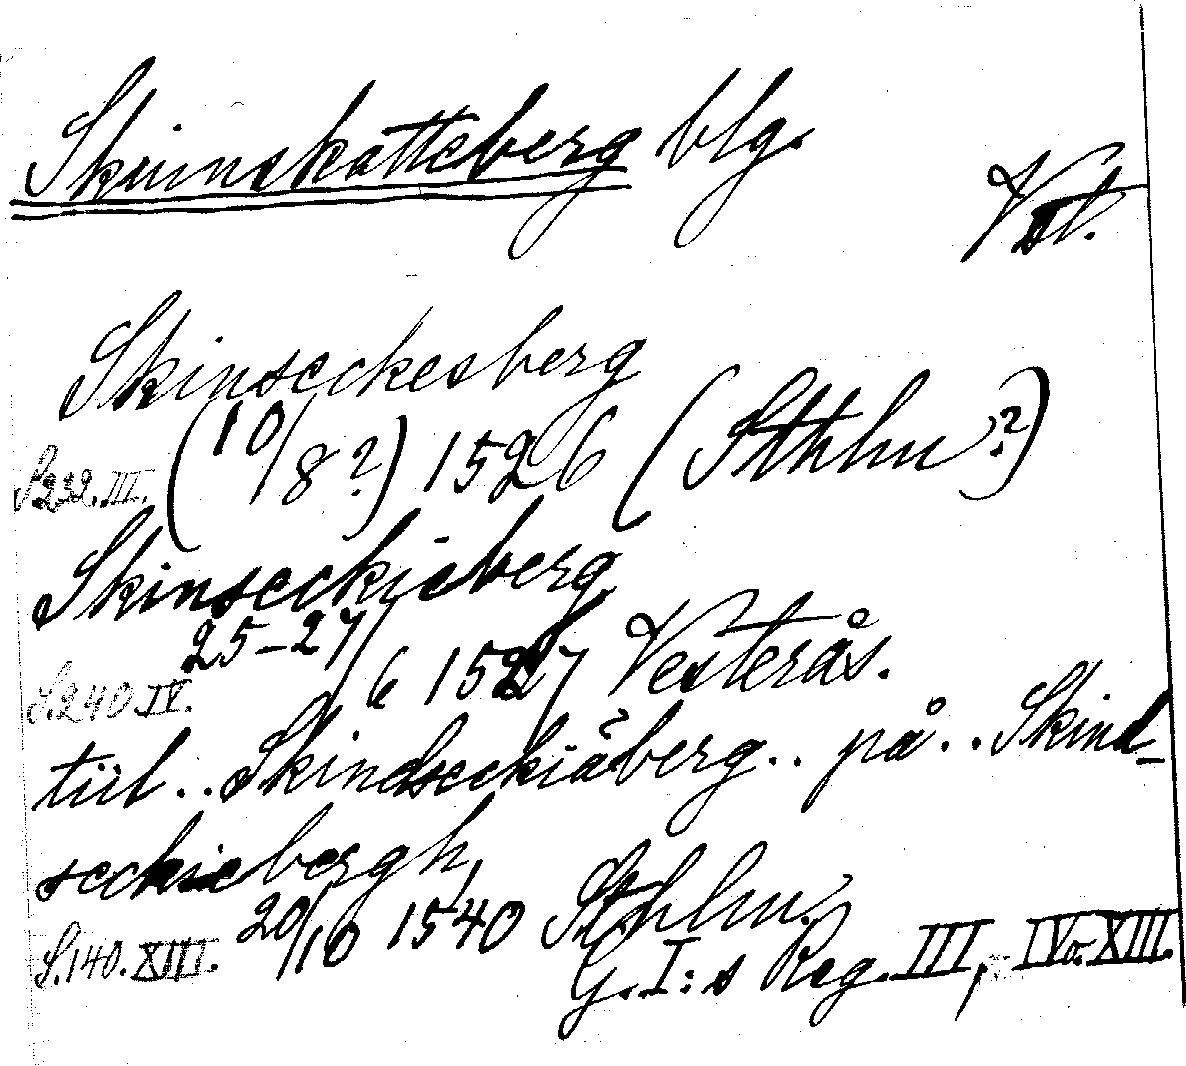 Skinnskatteberg blg.
Vst.
Skinseckesberg
S. 232. III. (10/8?) 1526 (Sthlm?)
Skinseckieberg
S. 240. IV. 25-27/6 1527 Vesterås.
tiil .. Skindseckiäberg .. på .. Skind-
seckiebergh,
S. 140. XIII. 20/10 1540 Sthlm.
G. I:s Reg. III, IV o. XIII.